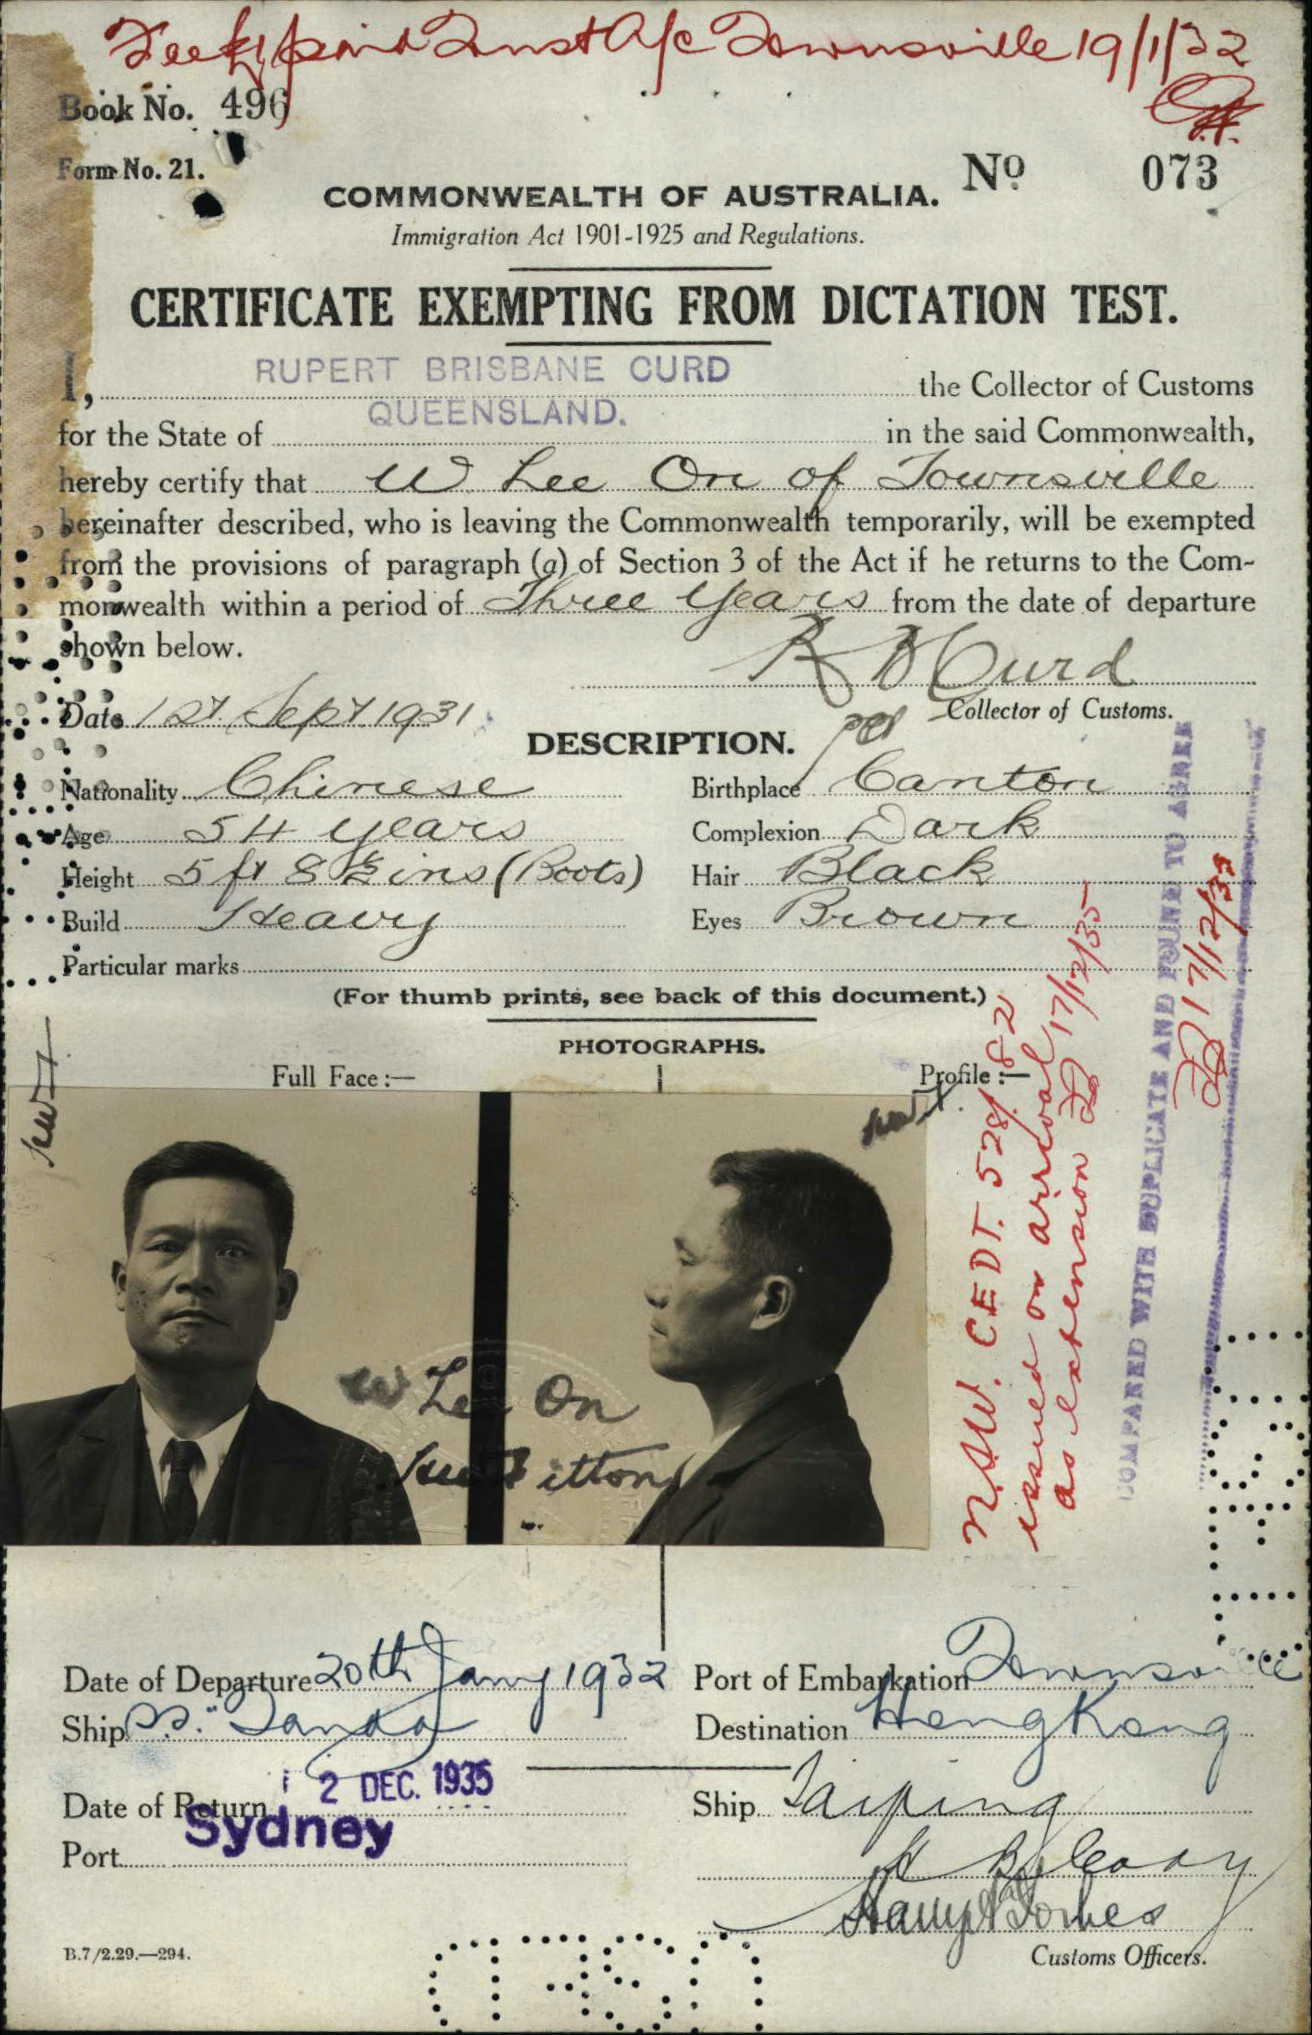 Fee £1 paid Trust A/c Townsville 19/1/32
Book No. 496
Form No. 21.
No 073
COMMONWEALTH OF AUSTRALIA.
Immigration Act 1901-1925 and Regulations.
CERTIFICATE EXEMPTING FROM DICTATION TEST.
I, RUPERT BRISBANE CURD the Collector of Customs
for the State of QUEENSLAND. in the said Commonwealth,
hereby certify that W Lee On of Townsville
hereinafter described, who is leaving the Commonwealth temporarily, will be exempted
from the provisions of paragraph (a) of Section 3 of the Act if he returns to the Com-
monwealth within a period of Three Years from the date of departure
shown below.
R B Curd
Date 1st Sept 1931 Collector of Customs.
DESCRIPTION.
Nationality Chinese Birthplace Canton
Age 54 years Complexion Dark
Height 5 ft 8½ ins (Boots) Hair Black
Build Heavy Eyes Brown
Particular marks
(For thumb prints, see back of this document.)
PHOTOGRAPHS.
Full Face :— Profile :—
W Lee On
N.S.W. CEDT. 528/82
issued on arrival
as extension 17/12/35
COMPARED WITH DUPLICATE AND FOUND TO AGREE
17/12/35
Date of Departure 20th Jany 1932 Port of Embarkation Townsville
Ship S.S. "Tanda" Destination Hong Kong
Date of Return 12 DEC. 1935 Ship Taiping
Port Sydney
Customs Officers.
B.7/2.29.—294.